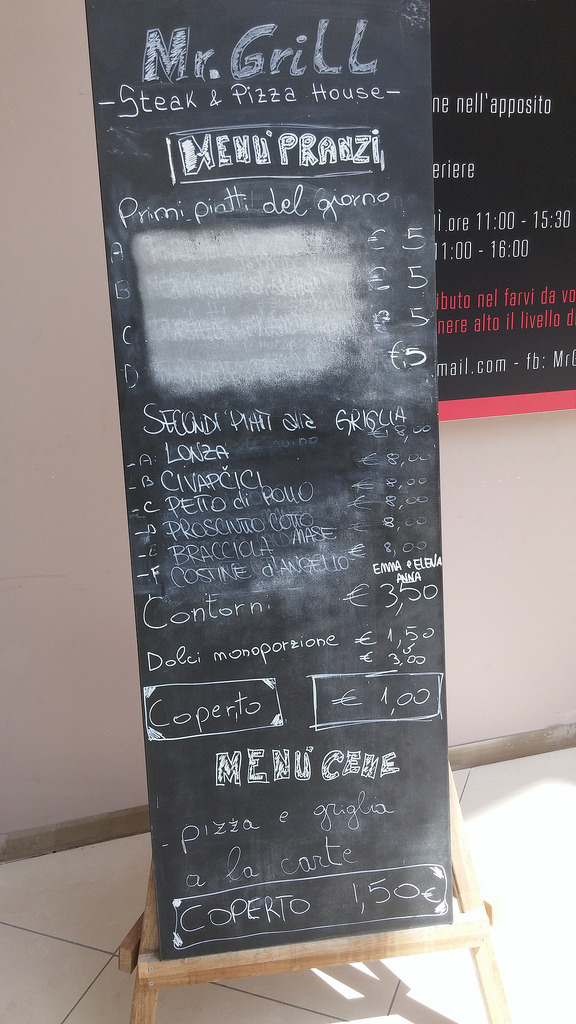 Mr. Grill
- Steak & Pizza House -
MENU' PRANZI
Primi piatti del giorno
A € 5
B € 5
C € 5
D € 5
SECONDI PIATTI alla GRIGLIA
-A LONZA € 8,00
-B CIVAPČICI € 8,00
-C PETTO di POLLO € 8,00
-D PROSCIUTTO COTTO € 8,00
-E BRACCIOLA MASE € 8,00
-F COSTINE d'AGNELLO € 8,00
EMMA e ELENA
ANNA
Contorni € 3,50
Dolci monoporzione € 1,50
€ 3,00
Coperto € 1,00
MENU' CENE
- pizza e griglia
a la carte
COPERTO 1,50€
ne nell'apposito
eriere
Ì.ore 11:00 - 15:30
11:00 - 16:00
ibuto nel farvi da vo
nere alto il livello d
mail.com - fb: MrG